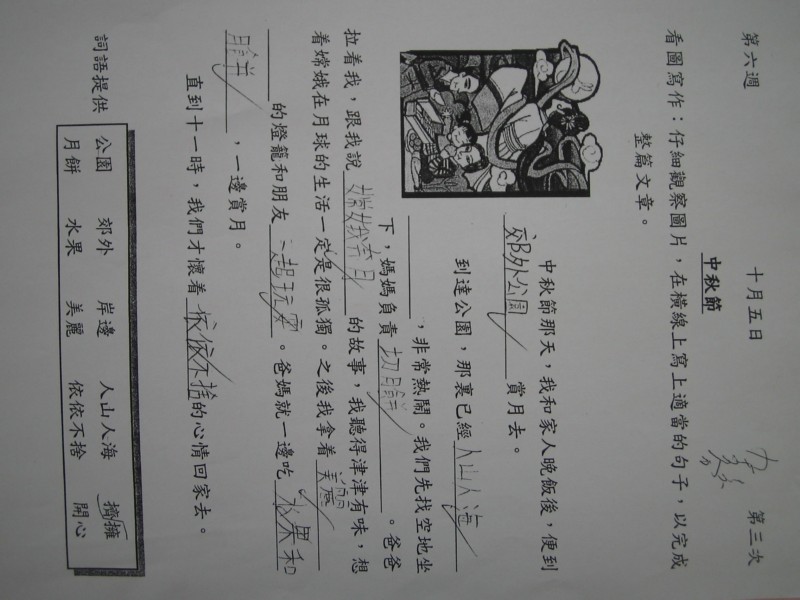 第六週 十月五日 第三次
中秋節
看圖寫作：仔細觀察圖片，在橫線上寫上適當的句子，以完成
整篇文章。
中秋節那天，我和家人晚飯後，便到
郊外公園 賞月去。
到達公園，那裏已經人山人海
，非常熱鬧。我們先找空地坐
下，媽媽負責切月餅。爸爸
拉着我，跟我說嫦娥奔月的故事，我聽得津津有味，想
着嫦娥在月球的生活一定是很孤獨。之後我拿着美麗
的燈籠和朋友一起玩耍。爸媽就一邊吃水果和
月餅，一邊賞月。
直到十一時，我們才懷着依依不捨的心情回家去。
詞語提供 公園 郊外 岸邊 人山人海 擠擁
月餅 水果 美麗 依依不捨 開心